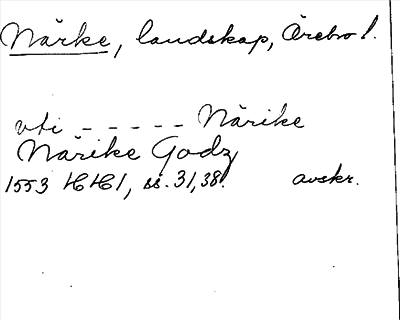 Närke, landskap, Örebro l.
vti - - - - - Närike
Närike Godz
1553 HH1, ss. 31, 38. avskr.